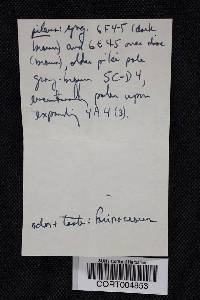 pileus: yng. 6F4-5 (dark
brown) and 6E4-5 over disc
(brown), older pilei pale
gray-brown 5C-D4,
eventually paler upon
expanding 4A4(3).
odor + taste: farinaceous
CORT004853